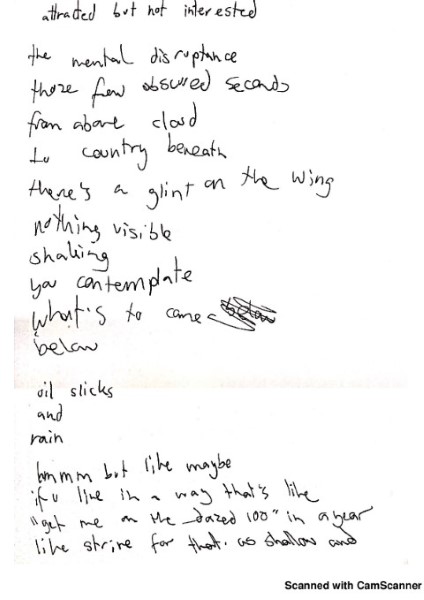 attracted but not interested
the mental disruptance
those few obscured seconds
from above cloud
to country beneath
there's a glint on the wing
nothing visible
shaking
you contemplate
what's to come
below
oil slicks
and
rain
hmmm but like maybe
if u live in a way that's like
"get me on the dazed 100" in a year
like strive for that. as shallow and
Scanned with CamScanner